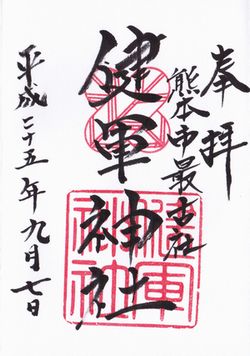 奉拝
熊本市最古社
健軍神社
平成二十五年九月七日
健軍
神社